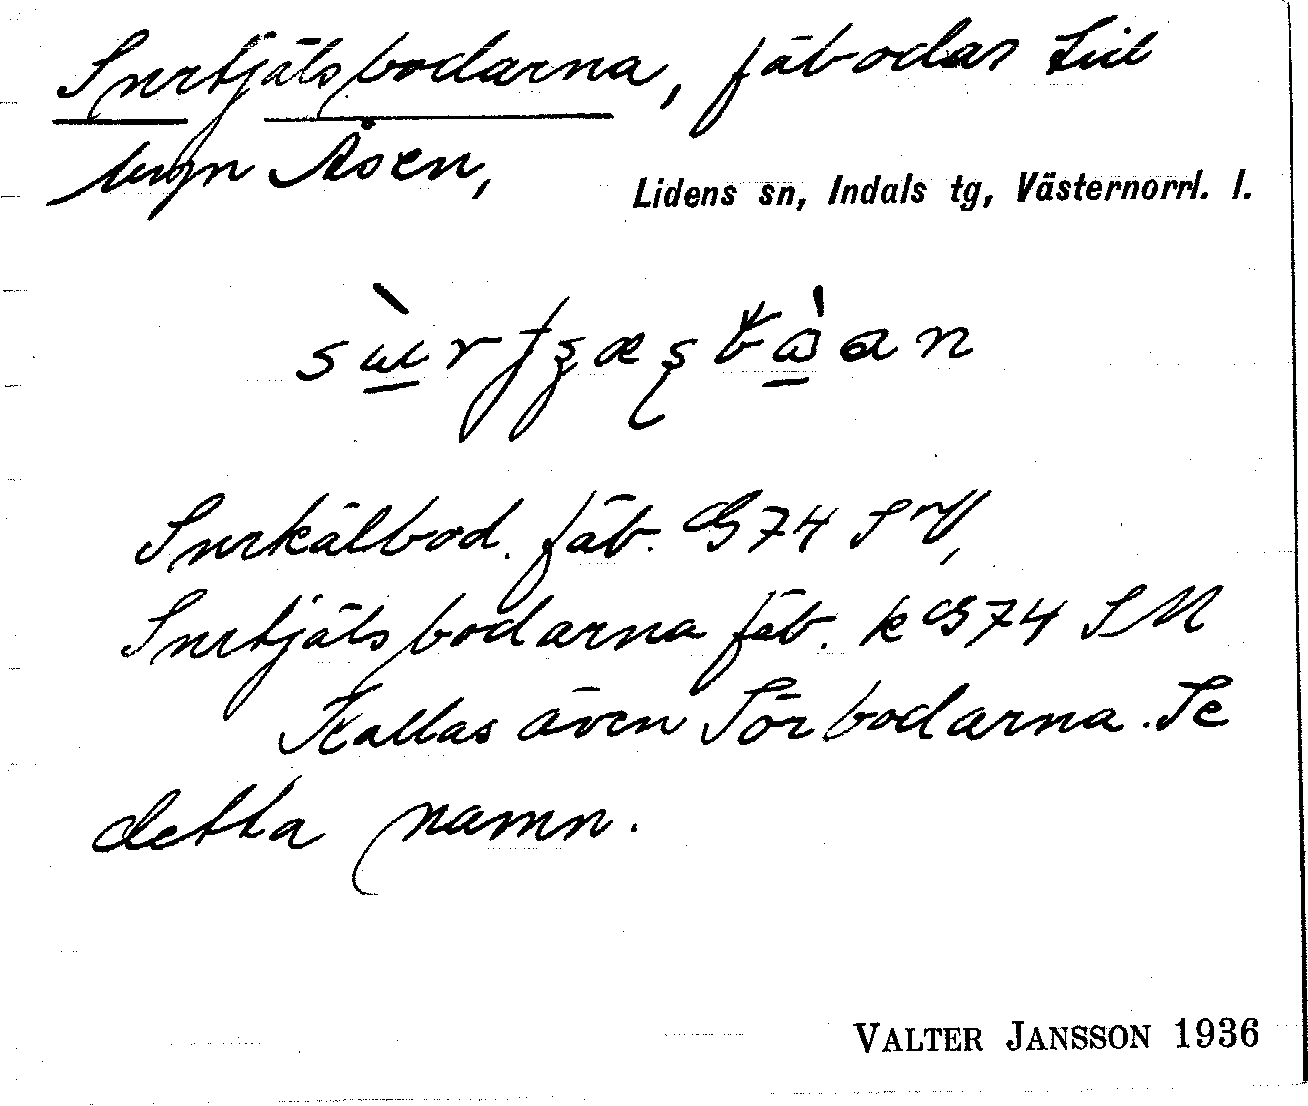 Surtjälsbodarna, fäbodar till
byn Åsen,
Lidens sn, Indals tg, Västernorrl. l.
Surkälbod. fäb. G74 SV,
Surtjälsbodarna fäb. k G74 SM
Kallas även Sörbodarna. Se
detta namn.
VALTER JANSSON 1936